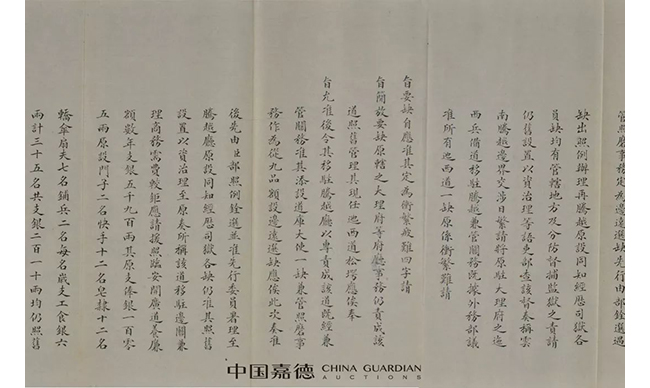 管照磨事務定為邊遠選缺先行由部銓選遇
缺出照例辦理再騰越原設同知經歷司獄各
員缺均有管轄地方及分防督捕監獄之責請
仍舊設置以資治理等語吏部查該督奏稱雲
南騰越邊界交涉日繁請將原駐大理府之迤
西兵備道移駐騰越兼管關務既據外務部議
准所有迤西道一缺原係衝繁難請
旨要缺自應准其定為衝繁疲難四字請
旨簡放要缺原轄之大理府等府廳事務仍責成該
道照舊管理其現任迤西道松堃應俟奉
旨允准後令其移駐騰越廳以專責成該道既經兼
管關務准其添設道庫大使一缺兼管照磨事
務作為從九品額設邊遠選缺應俟此次奏准
後先由臣部照例銓選並准先行委員署理至
騰越廳原設同知經歷司獄各缺仍准其照舊
設置以資治理至原奏所稱該道移駐邊關兼
理商務需費較鉅應請援照臨安開廣道養廉
額數年支銀五千九百兩其原支俸銀一百零
五兩原設門子二名快手十二名皂隸十二名
轎傘扇夫七名鋪兵二名每名歲支工食銀六
兩計三十五名共支銀二百一十兩均仍照舊
中国嘉德 CHINA GUARDIAN
AUCTIONS